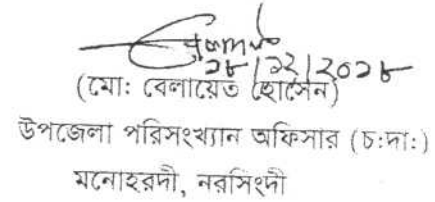 ২৮/১২/২০২৮
(মো: বেলায়েত হোসেন)
উপজেলা পরিসংখ্যান অফিসার (চ:দা:)
মনোহরদী, নরসিংদী